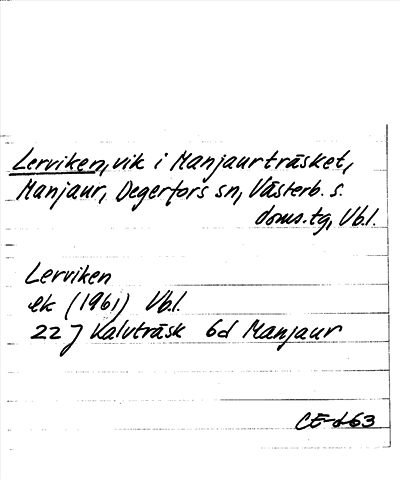 Lerviken, vik i Manjaurträsket,
Manjaur, Degerfors sn, Västerb. s.
doms.tg, Vb.l.
Lerviken
ek (1961) Vb.l.
22 J Kalvträsk 6d Manjaur
CE-d 63